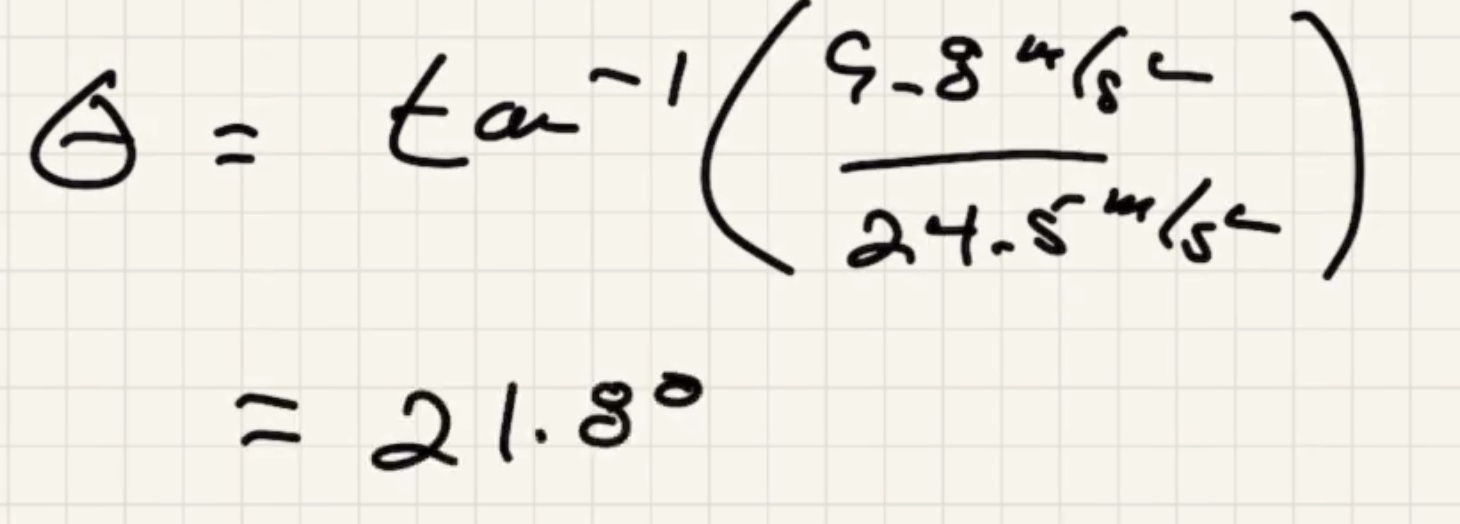 θ = tan⁻¹ ( 9.8 m/s² / 24.5 m/s² )
= 21.8°